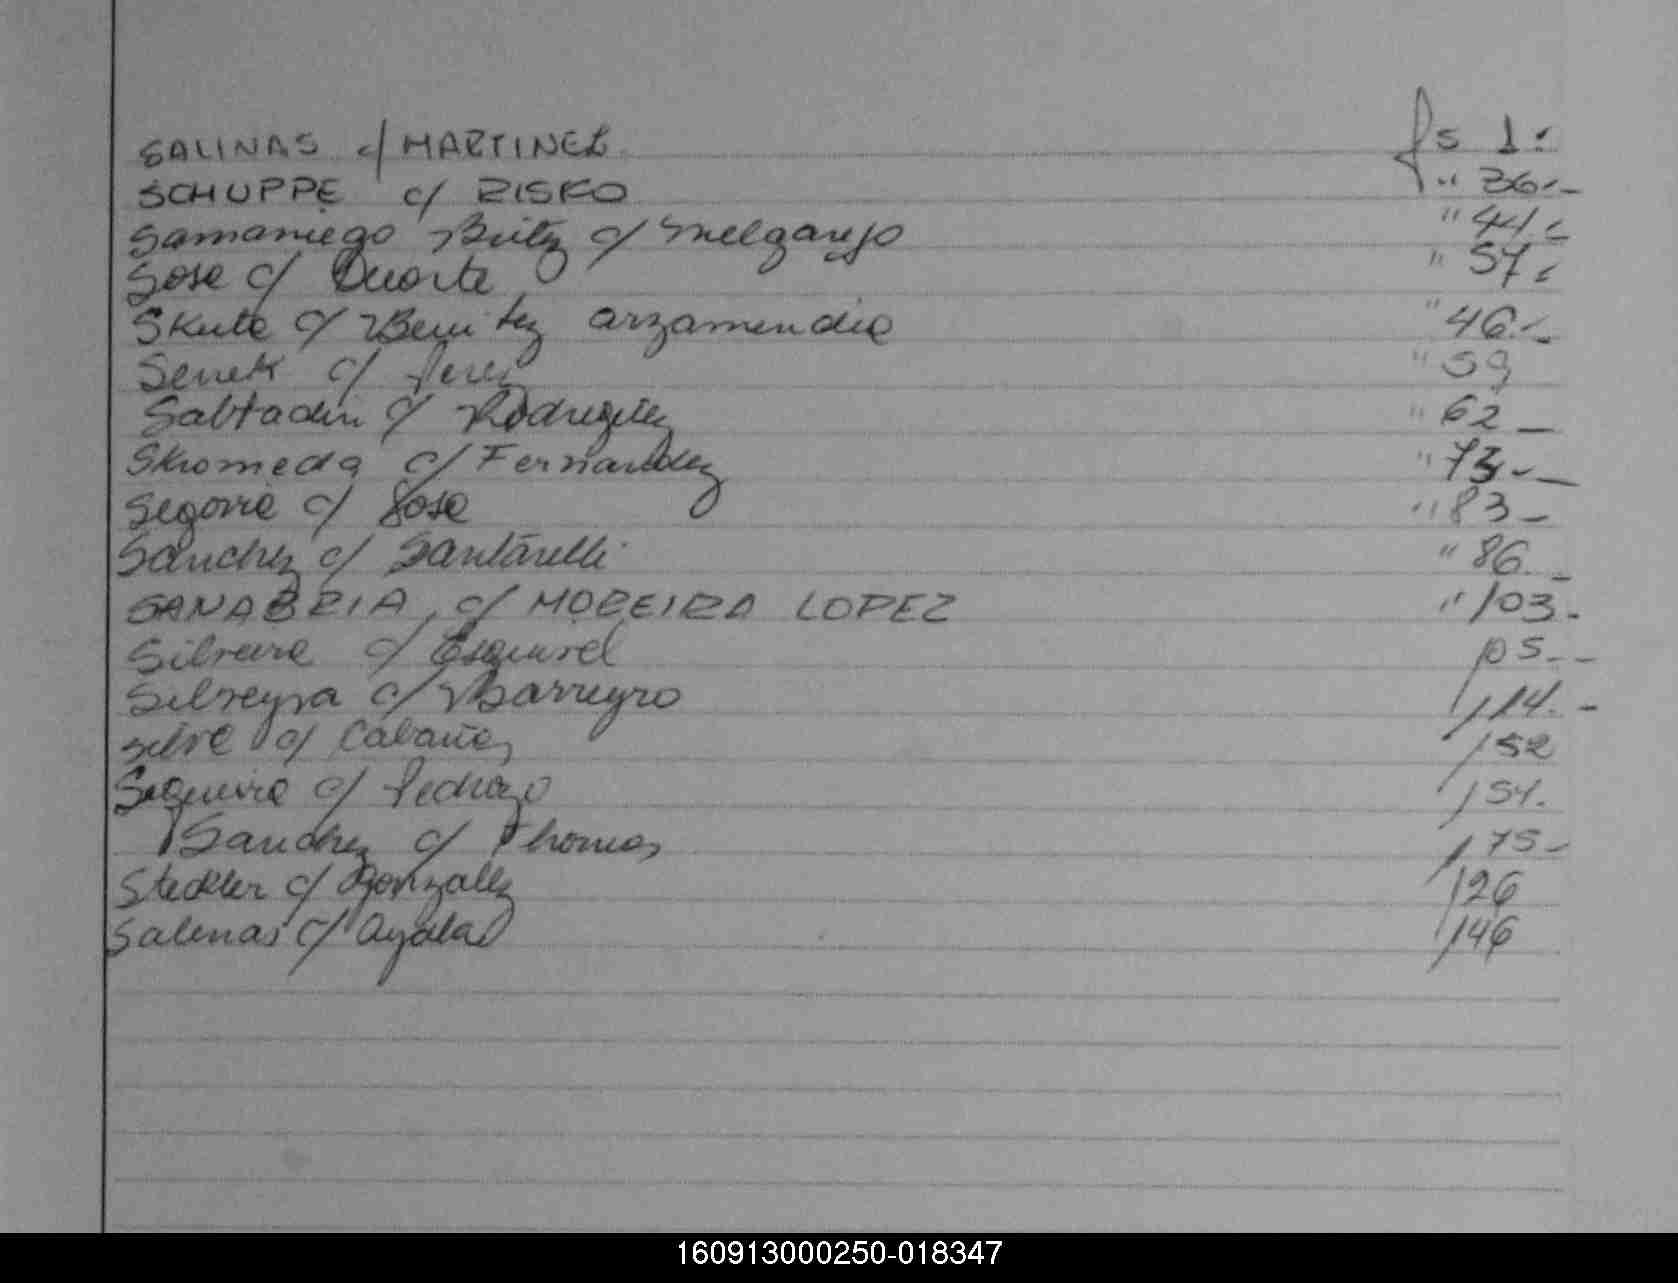 SALINAS c/ MARTINEZ fs 1.-
SCHUPPE c/ RISKO " 36.-
Samaniego Britez c/ Melgarejo " 44.-
Sosa c/ Duarte " 57.-
Skuta c/ Benitez arzamendia " 46.-
Senek c/ Perez " 59
Sabtadin c/ Rodriguez " 62 _
Skromeda c/ Fernandez " 73.-
Segovia c/ Sosa " 83 -
Sanchez c/ Santarelli " 86. -
SANABRIA c/ MOREIRA LOPEZ " 103.-
Silveira c/ Esquivel 105.--
Silveyra c/ Barreyro 114.-
Silva c/ Cabañas 152
Sequeira c/ Pedrozo 154.
Sanchez c/ Thomas 175.-
Steckler c/ Gonzalez 126
Salinas c/ Ayala 146
160913000250-018347